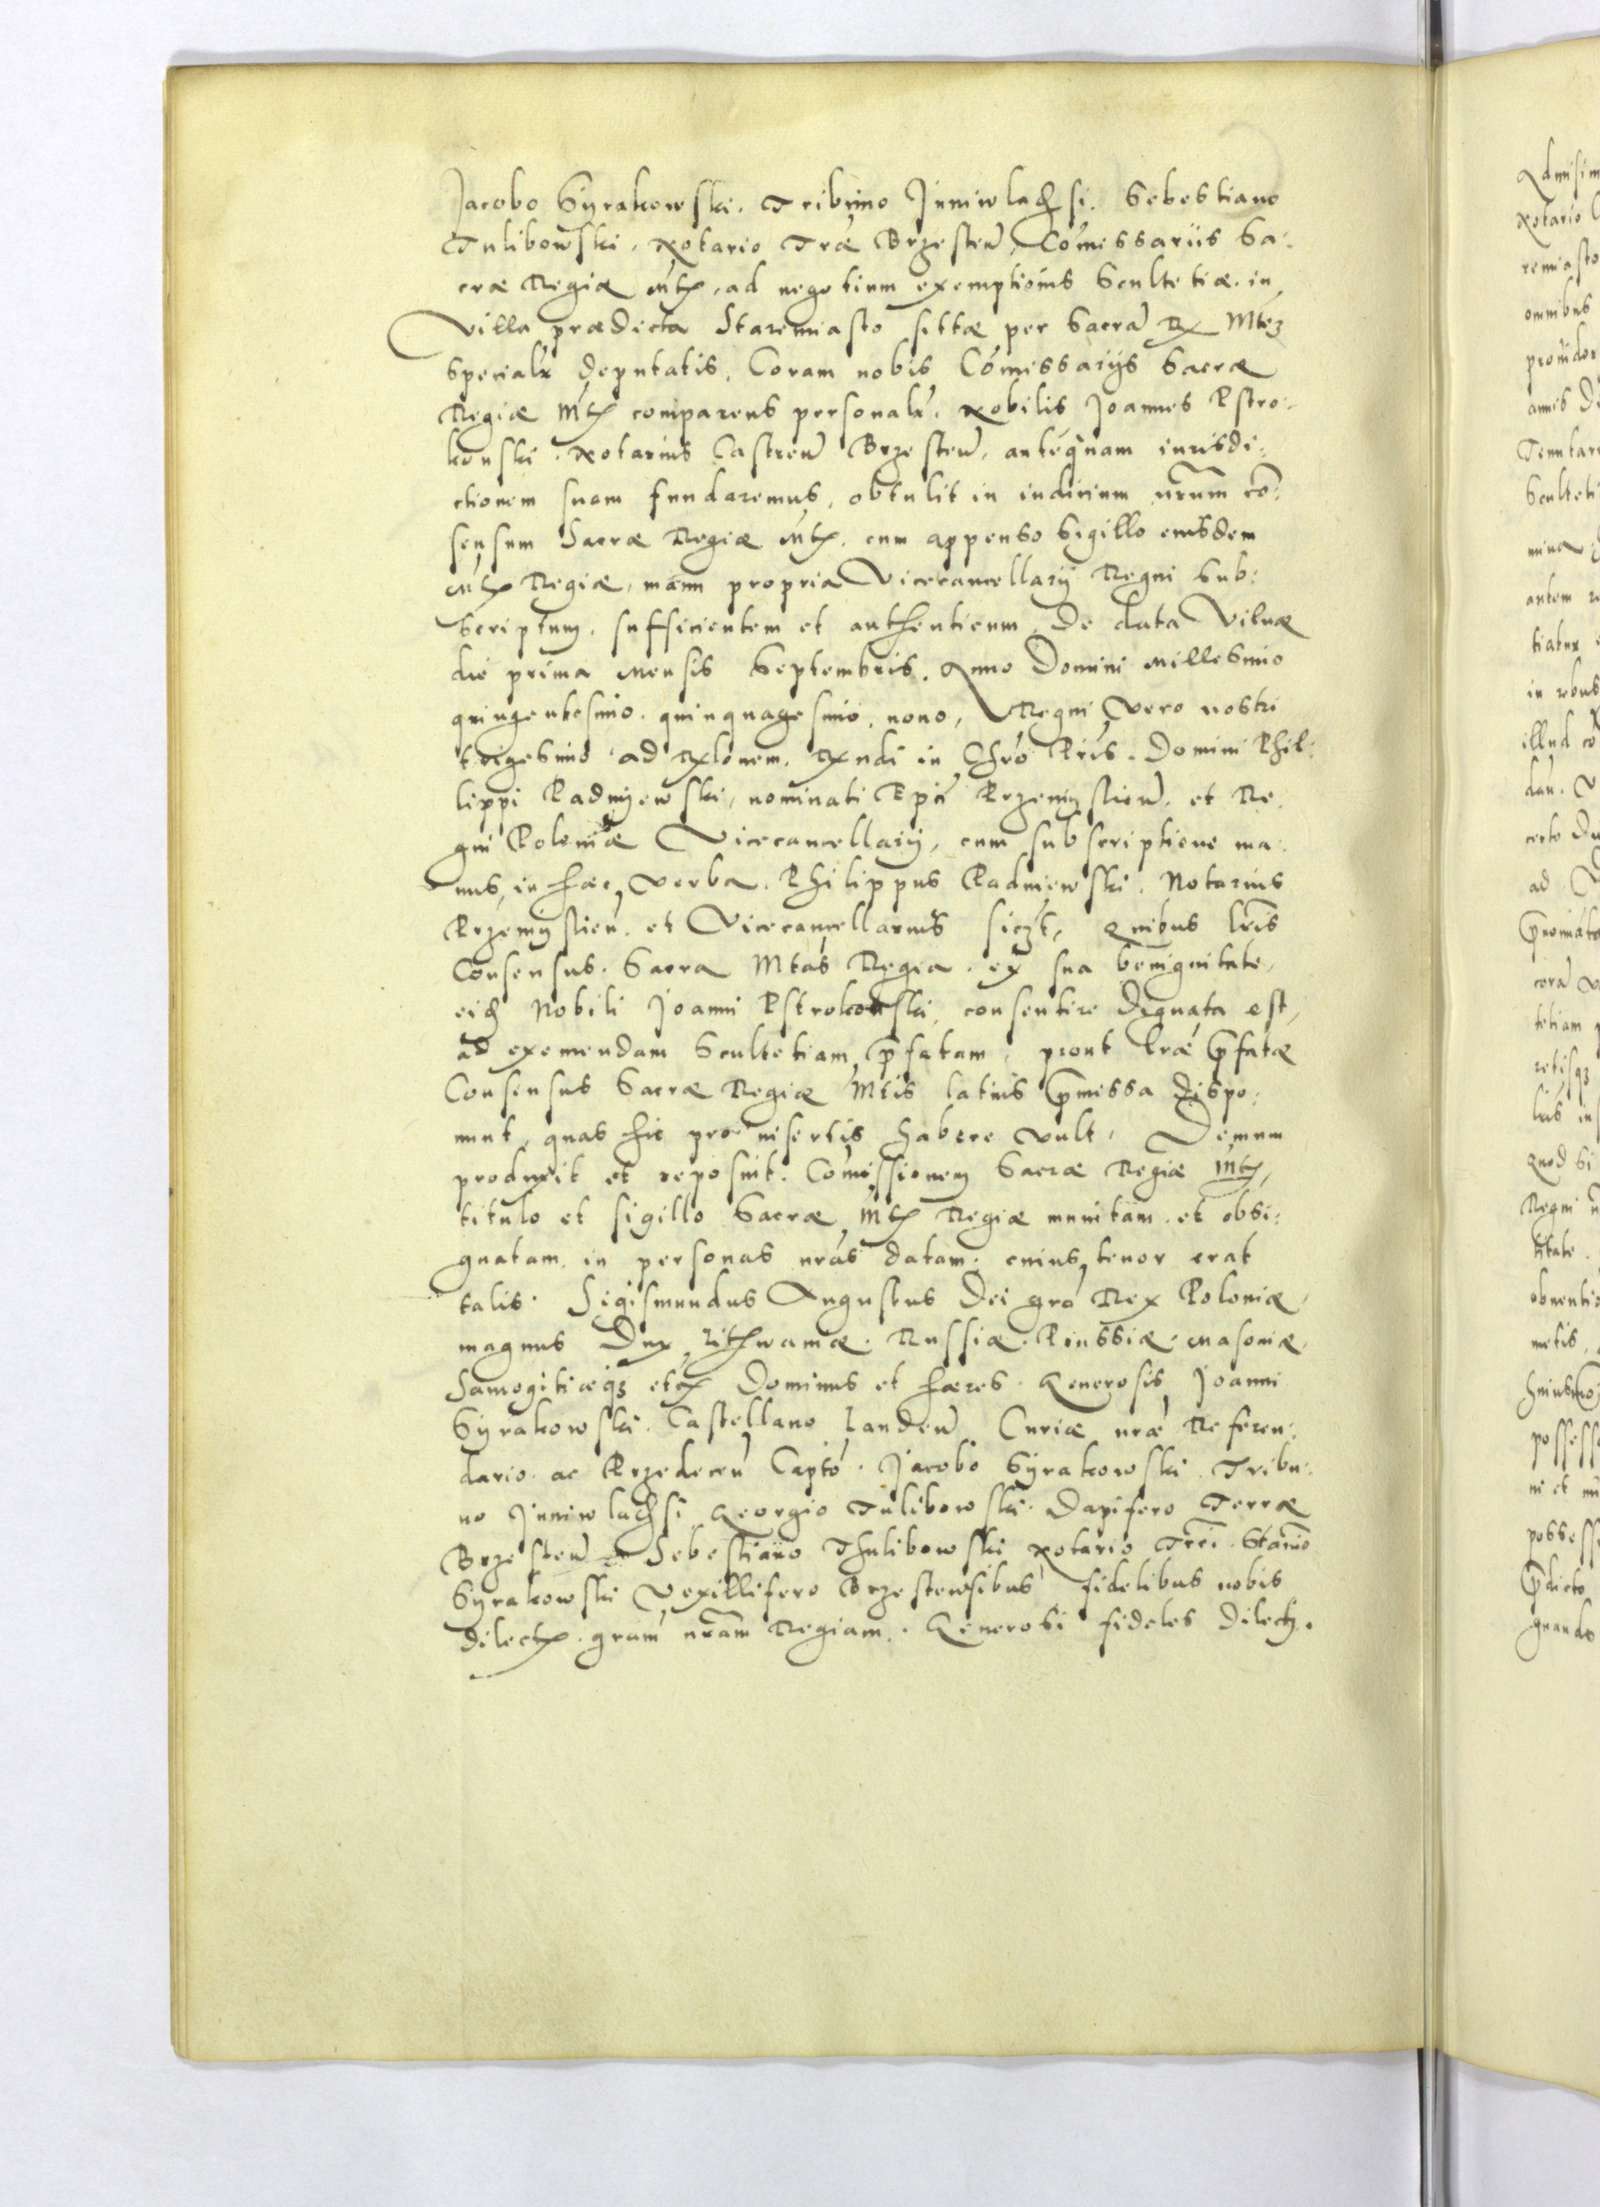 Jacobo Syrakowski. Tribuno Juniwladsi. Sebestiano
Tulibowski. Notario Træ Brzesten̄, Com̄essariis Sa:
cræ Regiæ Mtis, ad negotium exemptionis Scultetiæ. in
Villa prædicta Staremiasto sittæ per Sacrā Rx Mtēz
specialr̄ deputatis, Coram nobis Com̄essarijs Sacræ
Regiæ Mtis comparens personalr̄. Nobilis Joannes Pstro:
konski. Notarius Castren̄ Brzesten̄, anteqnam iurisdi:
ctionem suam fundaremus, obtulit in iudicium nrūm cō:
sensum Sacræ Regiæ Mtis. cum appenso Sigillo eiusdem
Mtis Regiæ, manu propria Vicecancellarij Regni Sub:
scriptum, sufficientem et authenticum, De data Vilnæ
die prima Mensis Septembris. Anno Domini Millesimo
quingentesimo. quinquagesimo. nono, Regni vero nostri
trigesimo ad Rxlonem. Rxndi in Chrō Pris. Domini Phil:
lippi Padnyewski, nominati Epī Przemyslien̄. et Re:
gni Poloniæ Vicecancellarij, cum subscriptione ma:
nus, in hæc verba. Philippus Padniewski. Notarius
Przemyslien̄. et Vicecancellarius sſzt, quibus lrīs
Consensus. Sacra Mtas Regia. ex sua benignitate,
eid Nobili Joanni Pstrokonski, consentire dignata est,
ad exemendam Scultetiam p̄fatam, prout lræ p̄fatæ
Consensus Sacræ Regiæ Mtis latius p̄missa dispo:
nunt, quas hic pro insertis habere vult, Demum
produxit et reposuit. Com̄issionem Sacræ Regiæ Mtis,
titulo et sigillo Sacræ Mtis Regiæ munitam. et obsi:
gnatam. in personas nrās datam. cuius tenor erat
talis. Sigismundus Augustus Dei grā Rex Poloniæ,
magnus Dux Lithwaniæ. Russiæ. Prussiæ. Masoviæ,
Samogitiæqz etc Dominus et hæres. Generosis Joanni
Syrakowski. Castellano Landen̄ Curiæ nræ Referen:
dario. ac Przedecen̄ Captō. Jacobo Syrakowski. Tribu:
no Juniwladsi Georgio Tulibowski. Dapifero Terræ
Brzesten̄ Sebestiano Thulibowski Notario Trrī. Stanīo
Syrakowski Vexillifero Brzestensibus fidelibus nobis
dilectis. grām nrām Regiam. Generosi fideles dilecti.